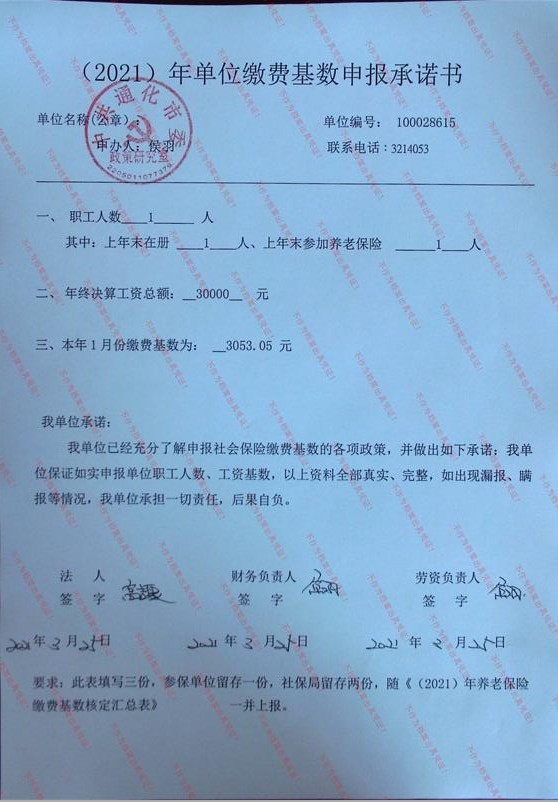 （2021）年单位缴费基数申报承诺书
单位名称(公章)：
单位编号： 100028615
申办人：侯羽
联系电话：3214053
中共通化市委
政策研究室
2205011077379
一、 职工人数___1_____ 人
其中：上年末在册 ___1___人、上年末参加养老保险 _____1___人
二、年终决算工资总额：__30000__ 元
三、本年1月份缴费基数为： __3053.05 元
我单位承诺：
我单位已经充分了解申报社会保险缴费基数的各项政策，并做出如下承诺：我单
位保证如实申报单位职工人数、工资基数，以上资料全部真实、完整，如出现漏报、瞒
报等情况，我单位承担一切责任，后果自负。
法 人 财务负责人 劳资负责人
签 字 签 字 签 字
2021年3月25日 2021年3月25日 2021年3月25日
要求：此表填写三份，参保单位留存一份，社保局留存两份，随《（2021）年养老保险
缴费基数核定汇总表》 一并上报。